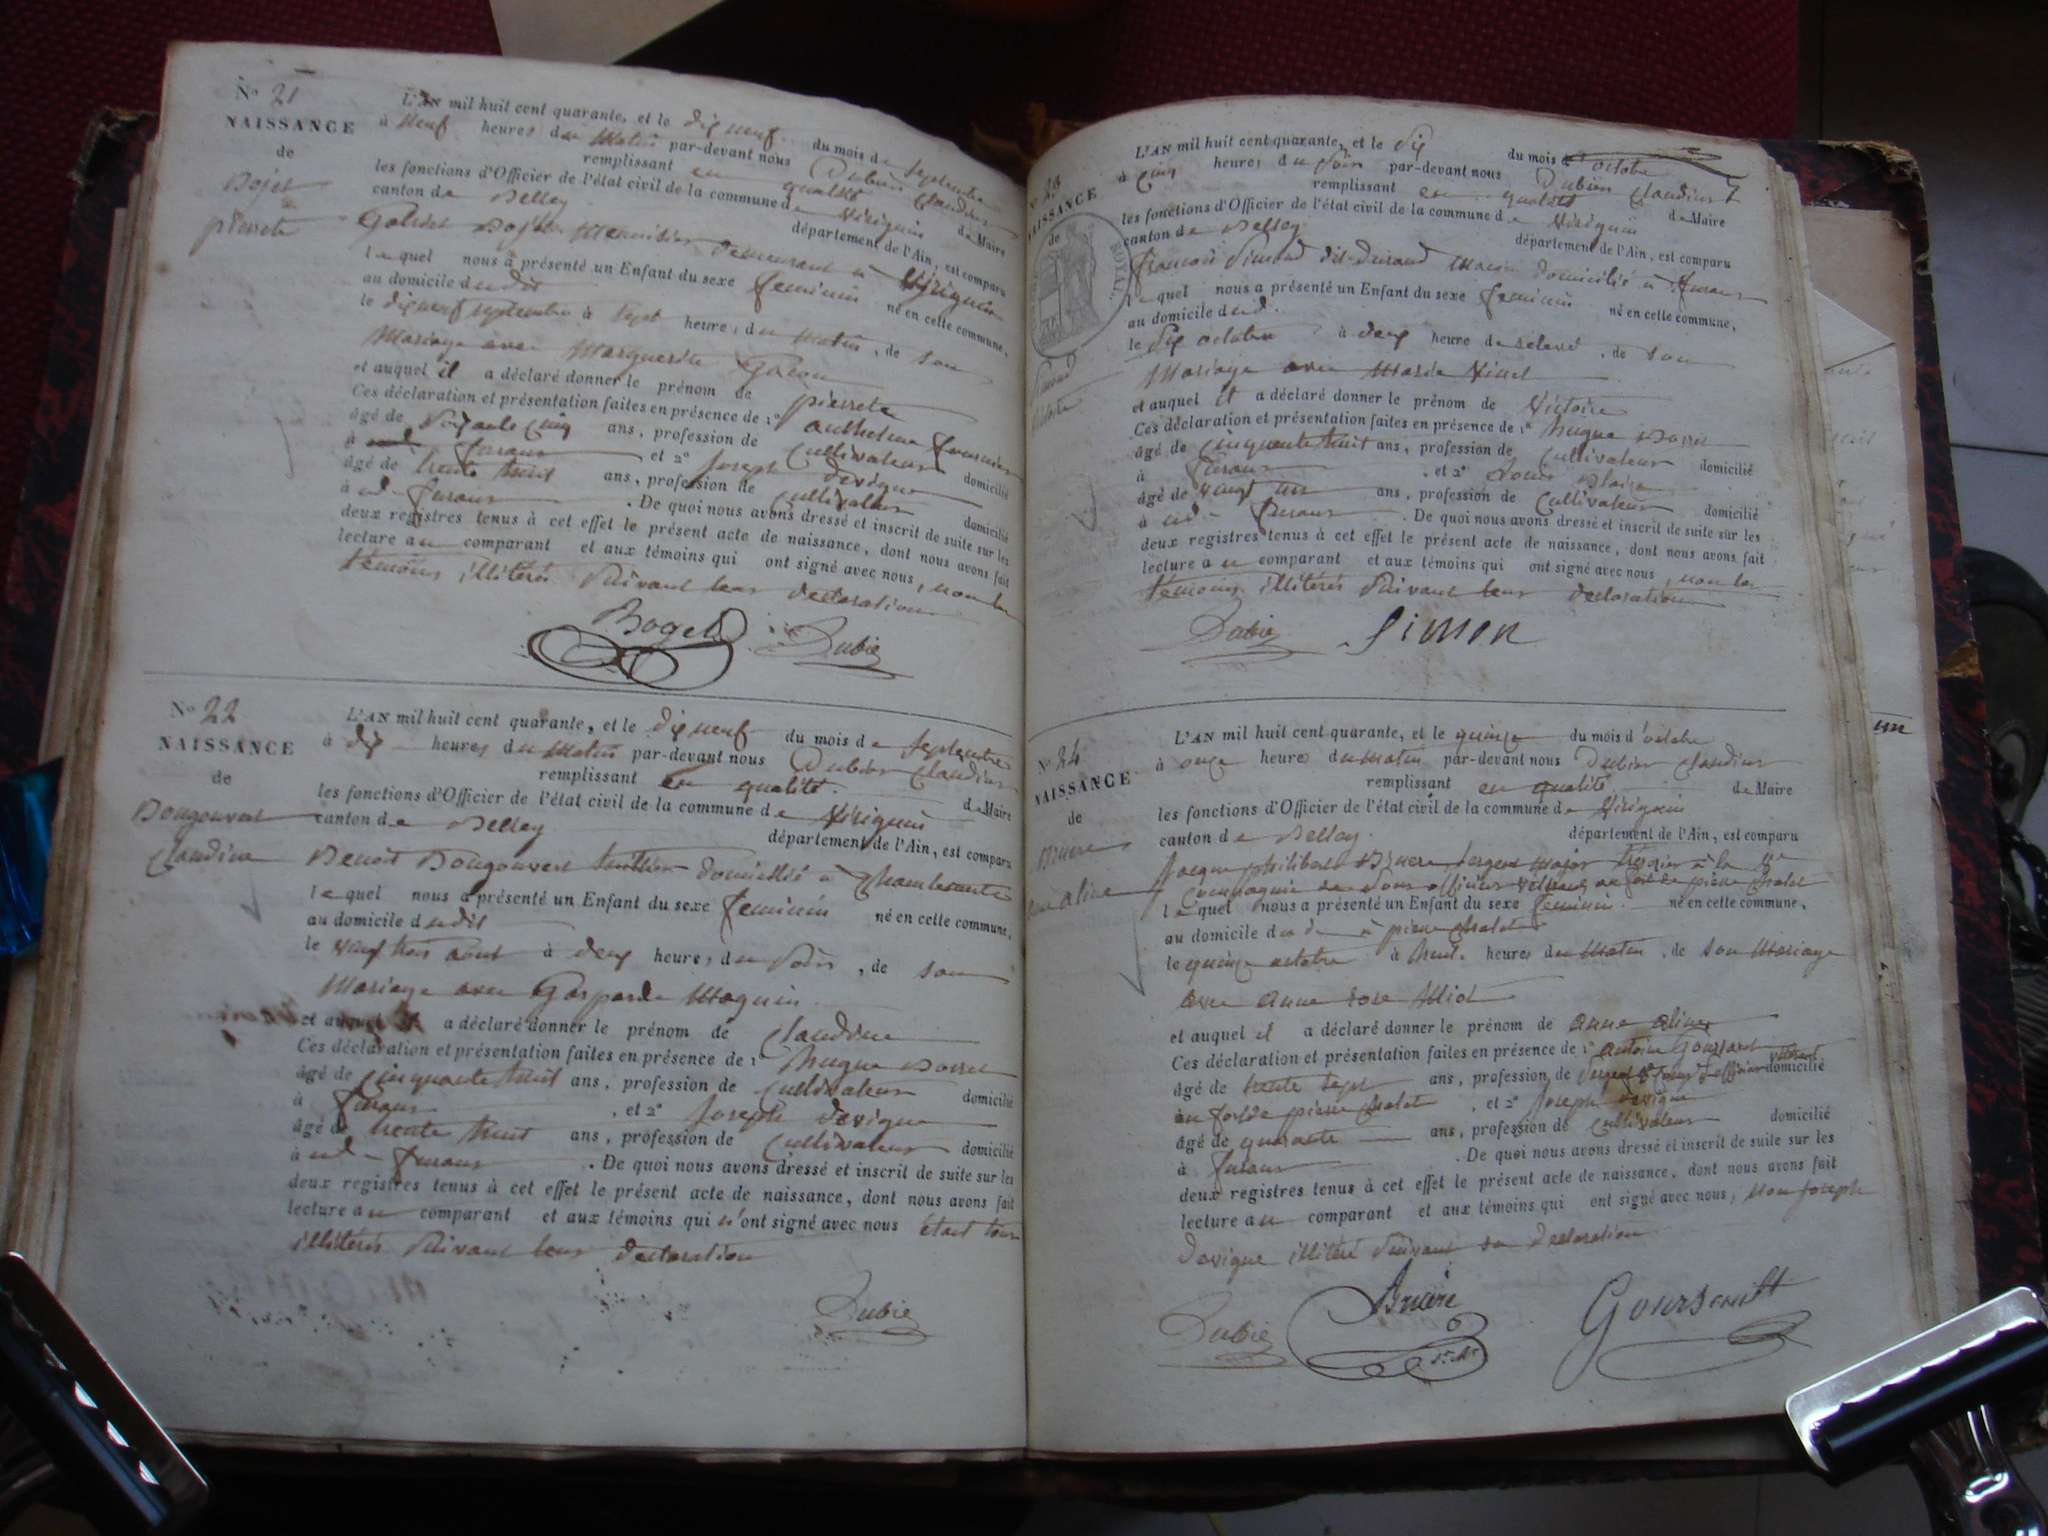 N° 21
NAISSANCE
de
Bojet
pierrete
L'AN mil huit cent quarante, et le dix neuf du mois de septembre
à neuf heures du matin par-devant nous Dubier Claudius
remplissant en qualité de Maire
les fonctions d'Officier de l'état civil de la commune de Virignin
canton de Belley département de l'Ain, est comparu
Bojet demeurant à Virignin
lequel nous a présenté un Enfant du sexe feminin né en cette commune,
au domicile dudit
le dixneuf septembre à sept heures du matin, de son
Mariage avec Marguerite
et auquel il a déclaré donner le prénom de pierrete
Ces déclaration et présentation faites en présence de 1° anthelme fournier
âgé de soixante cinq ans, profession de Cultivateur domicilié
à furans et 2° Joseph devigne
âgé de trente huit ans, profession de Cultivateur domicilié
à ud. furans. De quoi nous avons dressé et inscrit de suite sur les
deux registres tenus à cet effet le présent acte de naissance, dont nous avons fait
lecture au comparant et aux témoins qui ont signé avec nous, non les
temoins illitérés suivant leur declaration
Boget Dubie
N° 22
NAISSANCE
de
Bougouvert
claudine
L'AN mil huit cent quarante, et le dix neuf du mois de septembre
à dix heures du matin par-devant nous Dubier Claudius
remplissant en qualité de Maire
les fonctions d'Officier de l'état civil de la commune de Virignin
canton de Belley département de l'Ain, est comparu
Benoit Bougouvert domicilié à
lequel nous a présenté un Enfant du sexe feminin né en cette commune,
au domicile dudit
le vingt trois aout à deux heures du soir, de son
Mariage avec Gasparde Moquin
et auquel il a déclaré donner le prénom de Claudine
Ces déclaration et présentation faites en présence de 1° hugue
âgé de cinquante huit ans, profession de Cultivateur domicilié
à furans, et 2° Joseph devigne
âgé de trente huit ans, profession de Cultivateur domicilié
à ud. furans. De quoi nous avons dressé et inscrit de suite sur les
deux registres tenus à cet effet le présent acte de naissance, dont nous avons fait
lecture au comparant et aux témoins qui n'ont signé avec nous étant tous
illitérés suivant leur declaration
Dubie
NAISSANCE
de
ROYAL
L'AN mil huit cent quarante, et le six du mois d'octobre
à cinq heures du soir par-devant nous Dubier Claudius
remplissant en qualité de Maire
les fonctions d'Officier de l'état civil de la commune de Virignin
canton de Belley département de l'Ain, est comparu
françois Simond dit durand Maçon domicilié à furans
lequel nous a présenté un Enfant du sexe feminin né en cette commune,
au domicile dud.
le six octobre à deux heure de relevé, de son
Mariage avec Marie
et auquel il a déclaré donner le prénom de Victoire
Ces déclaration et présentation faites en présence de 1° hugue
âgé de cinquante huit ans, profession de Cultivateur domicilié
à furans, et 2° Louis Blaise
âgé de vingt un ans, profession de Cultivateur domicilié
à ud. furans. De quoi nous avons dressé et inscrit de suite sur les
deux registres tenus à cet effet le présent acte de naissance, dont nous avons fait
lecture au comparant et aux témoins qui ont signé avec nous, non les
temoins illitérés suivant leur declaration
Dubie Simon
N° 24
NAISSANCE
de
Bruere
aline
L'AN mil huit cent quarante, et le quinze du mois d'octobre
à onze heures du matin par-devant nous Dubier Claudius
remplissant en qualité de Maire
les fonctions d'Officier de l'état civil de la commune de Virignin
canton de Belley. département de l'Ain, est comparu
Jacque philibert Bruere sergent Major à la
Compagnie de sous officiers vétérans au fort de pierre chatel
lequel nous a présenté un Enfant du sexe feminin né en cette commune,
au domicile à pierre chatel
le quinze octobre à huit heures du matin, de son Mariage
avec anne rose
et auquel il a déclaré donner le prénom de anne aline
Ces déclaration et présentation faites en présence de 1° antoine
âgé de trente sept ans, profession de sergent domicilié
au fort de pierre chatel, et 2° Joseph devigne
âgé de quarante ans, profession de Cultivateur domicilié
à furans. De quoi nous avons dressé et inscrit de suite sur les
deux registres tenus à cet effet le présent acte de naissance, dont nous avons fait
lecture au comparant et aux témoins qui ont signé avec nous, non Joseph
devigne illitéré suivant sa declaration
Dubie